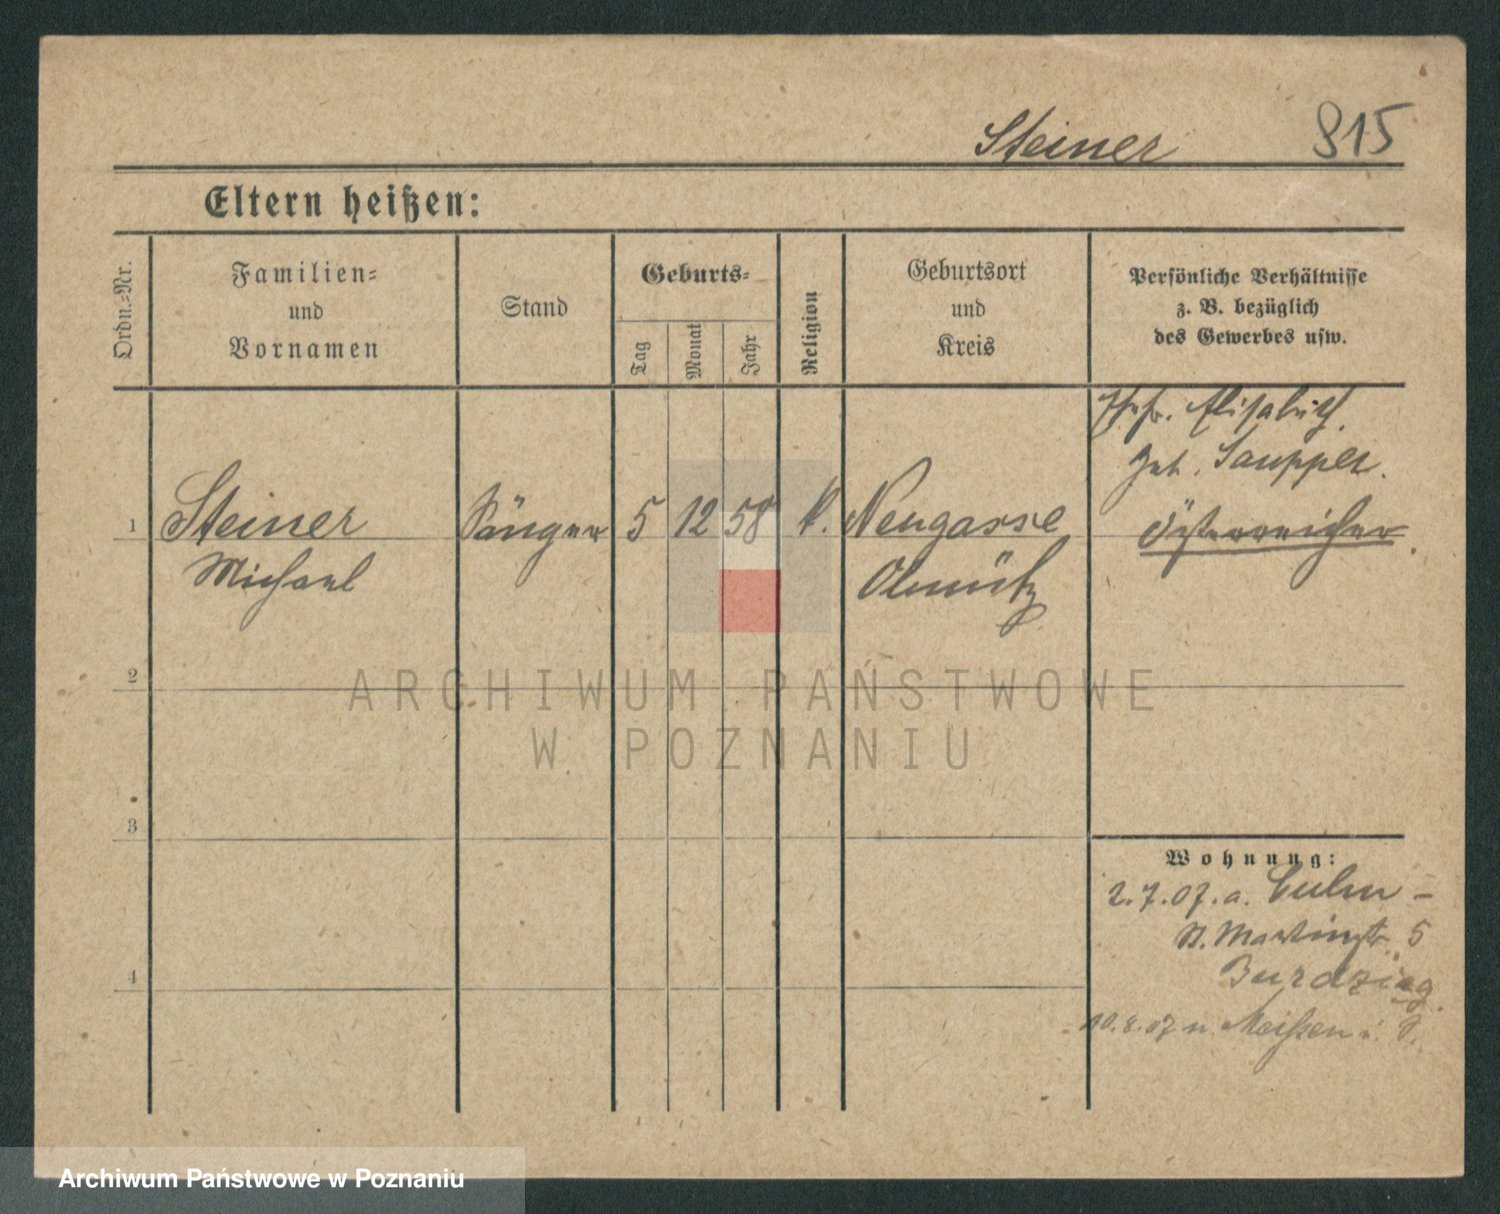 Steiner 915
Eltern heißen:
Ordn.=Nr.
Familien=
und
Vornamen
Stand
Geburts=
Tag
Monat
Jahr
Religion
Geburtsort
und
Kreis
Persönliche Verhältnisse
z. B. bezüglich
des Gewerbes usw.
Elisabeth
geb. Saupper.
1 Steiner Sänger 5 12 58 k. Neugasse Österreicher.
Michael Olmütz
2
3
4
Wohnung:
2.7.07. a. Culm -
St. Martinstr. 5
Burdziag.
10.8.07 n. Meißen i. S.
ARCHIWUM PAŃSTWOWE
W POZNANIU
Archiwum Państwowe w Poznaniu